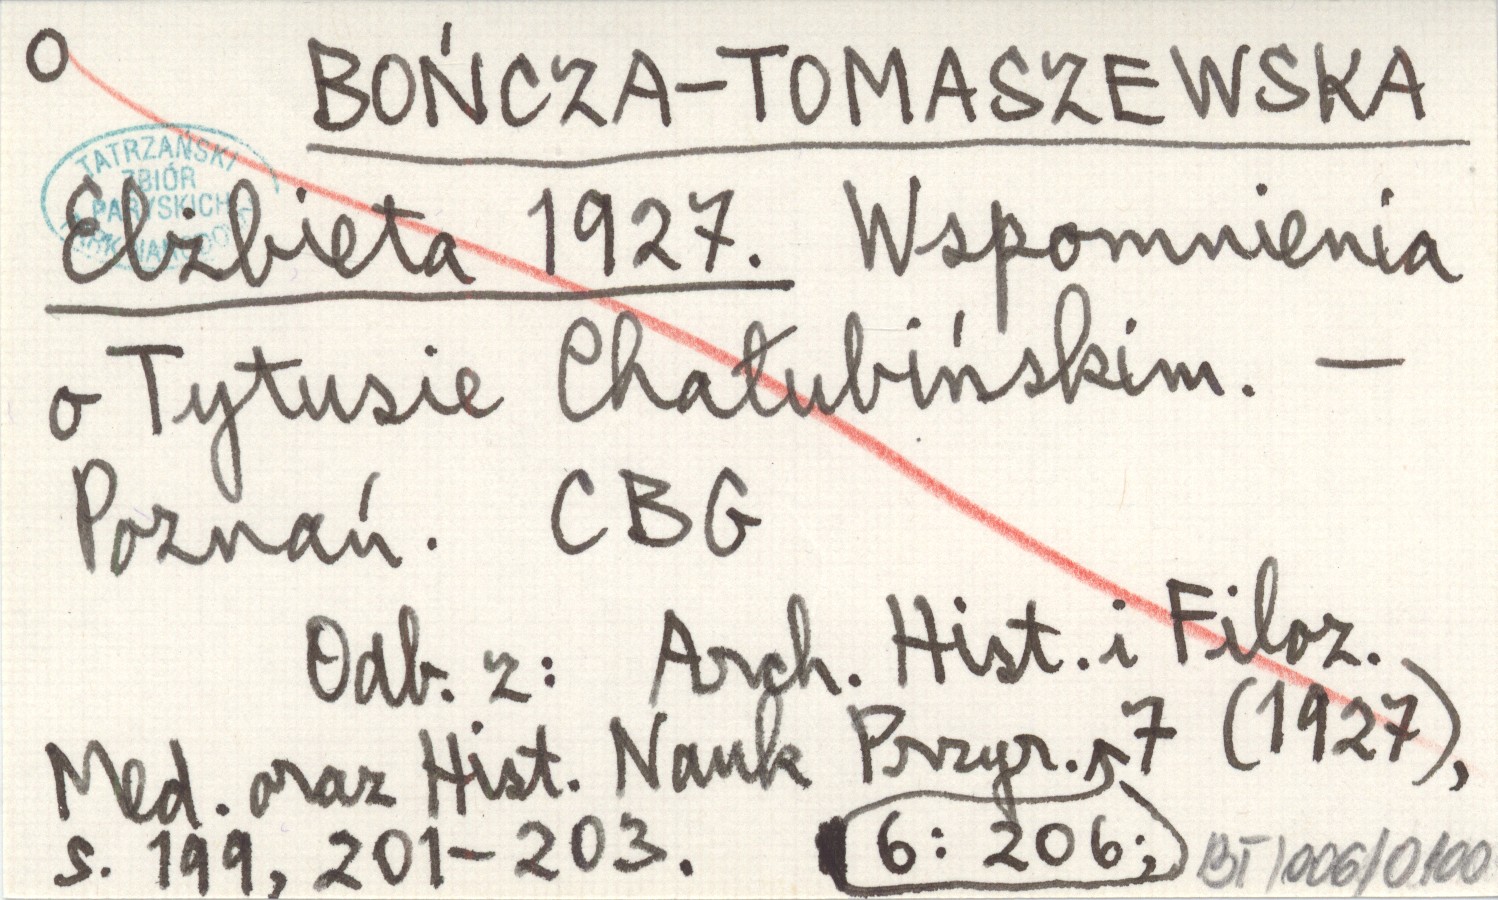 O BOŃCZA-TOMASZEWSKA
TATRZAŃSKI
ZBIÓR
PARYSKICH
Elżbieta 1927. Wspomnienia
o Tytusie Chałubińskim. —
Poznań. CBG
Odb. z: Arch. Hist. i Filoz.
Med. oraz Hist. Nauk Przyr. 7 (1927),
s. 199, 201-203. 6: 206;